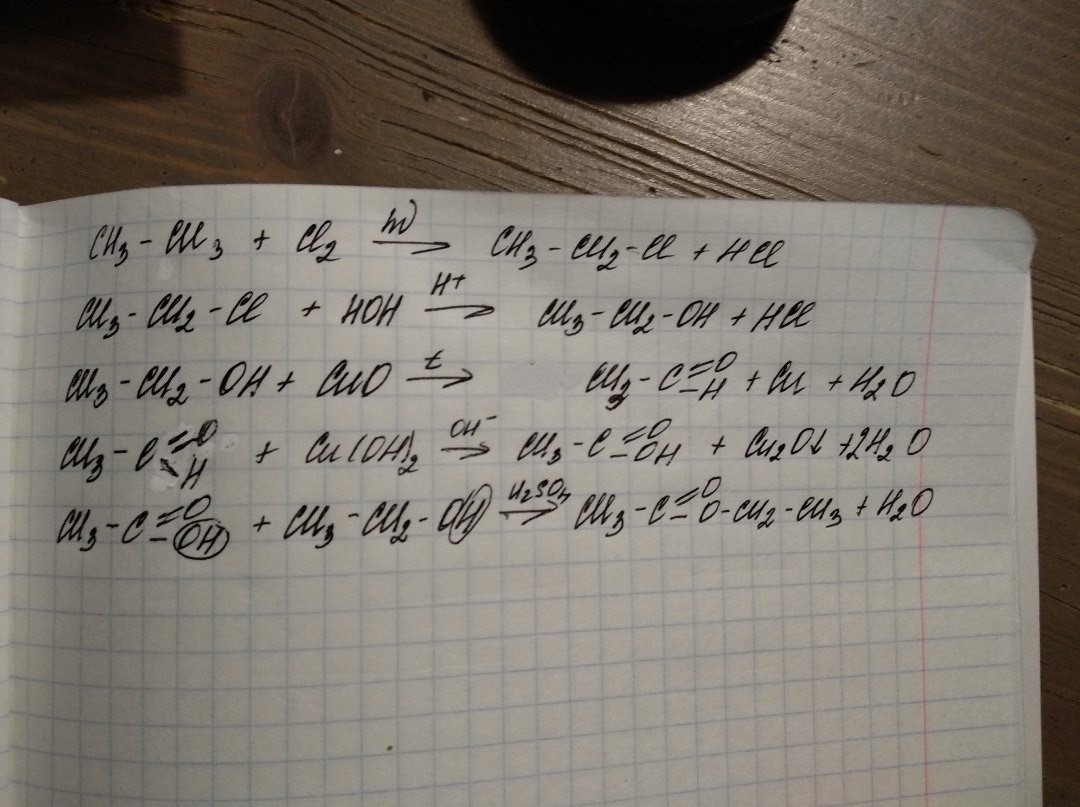 CH₃ - CH₃ + Cl₂ →(hν) CH₃ - CH₂ - Cl + HCl
CH₃ - CH₂ - Cl + HOH →(H⁺) CH₃ - CH₂ - OH + HCl
CH₃ - CH₂ - OH + CuO →(t) CH₃ - C =O -H + Cu + H₂O
CH₃ - C =O -H + Cu(OH)₂ →(OH⁻) CH₃ - C =O -OH + Cu₂O↓ + 2H₂O
CH₃ - C =O -OH + CH₃ - CH₂ - OH →(H₂SO₄) CH₃ - C =O -O - CH₂ - CH₃ + H₂O